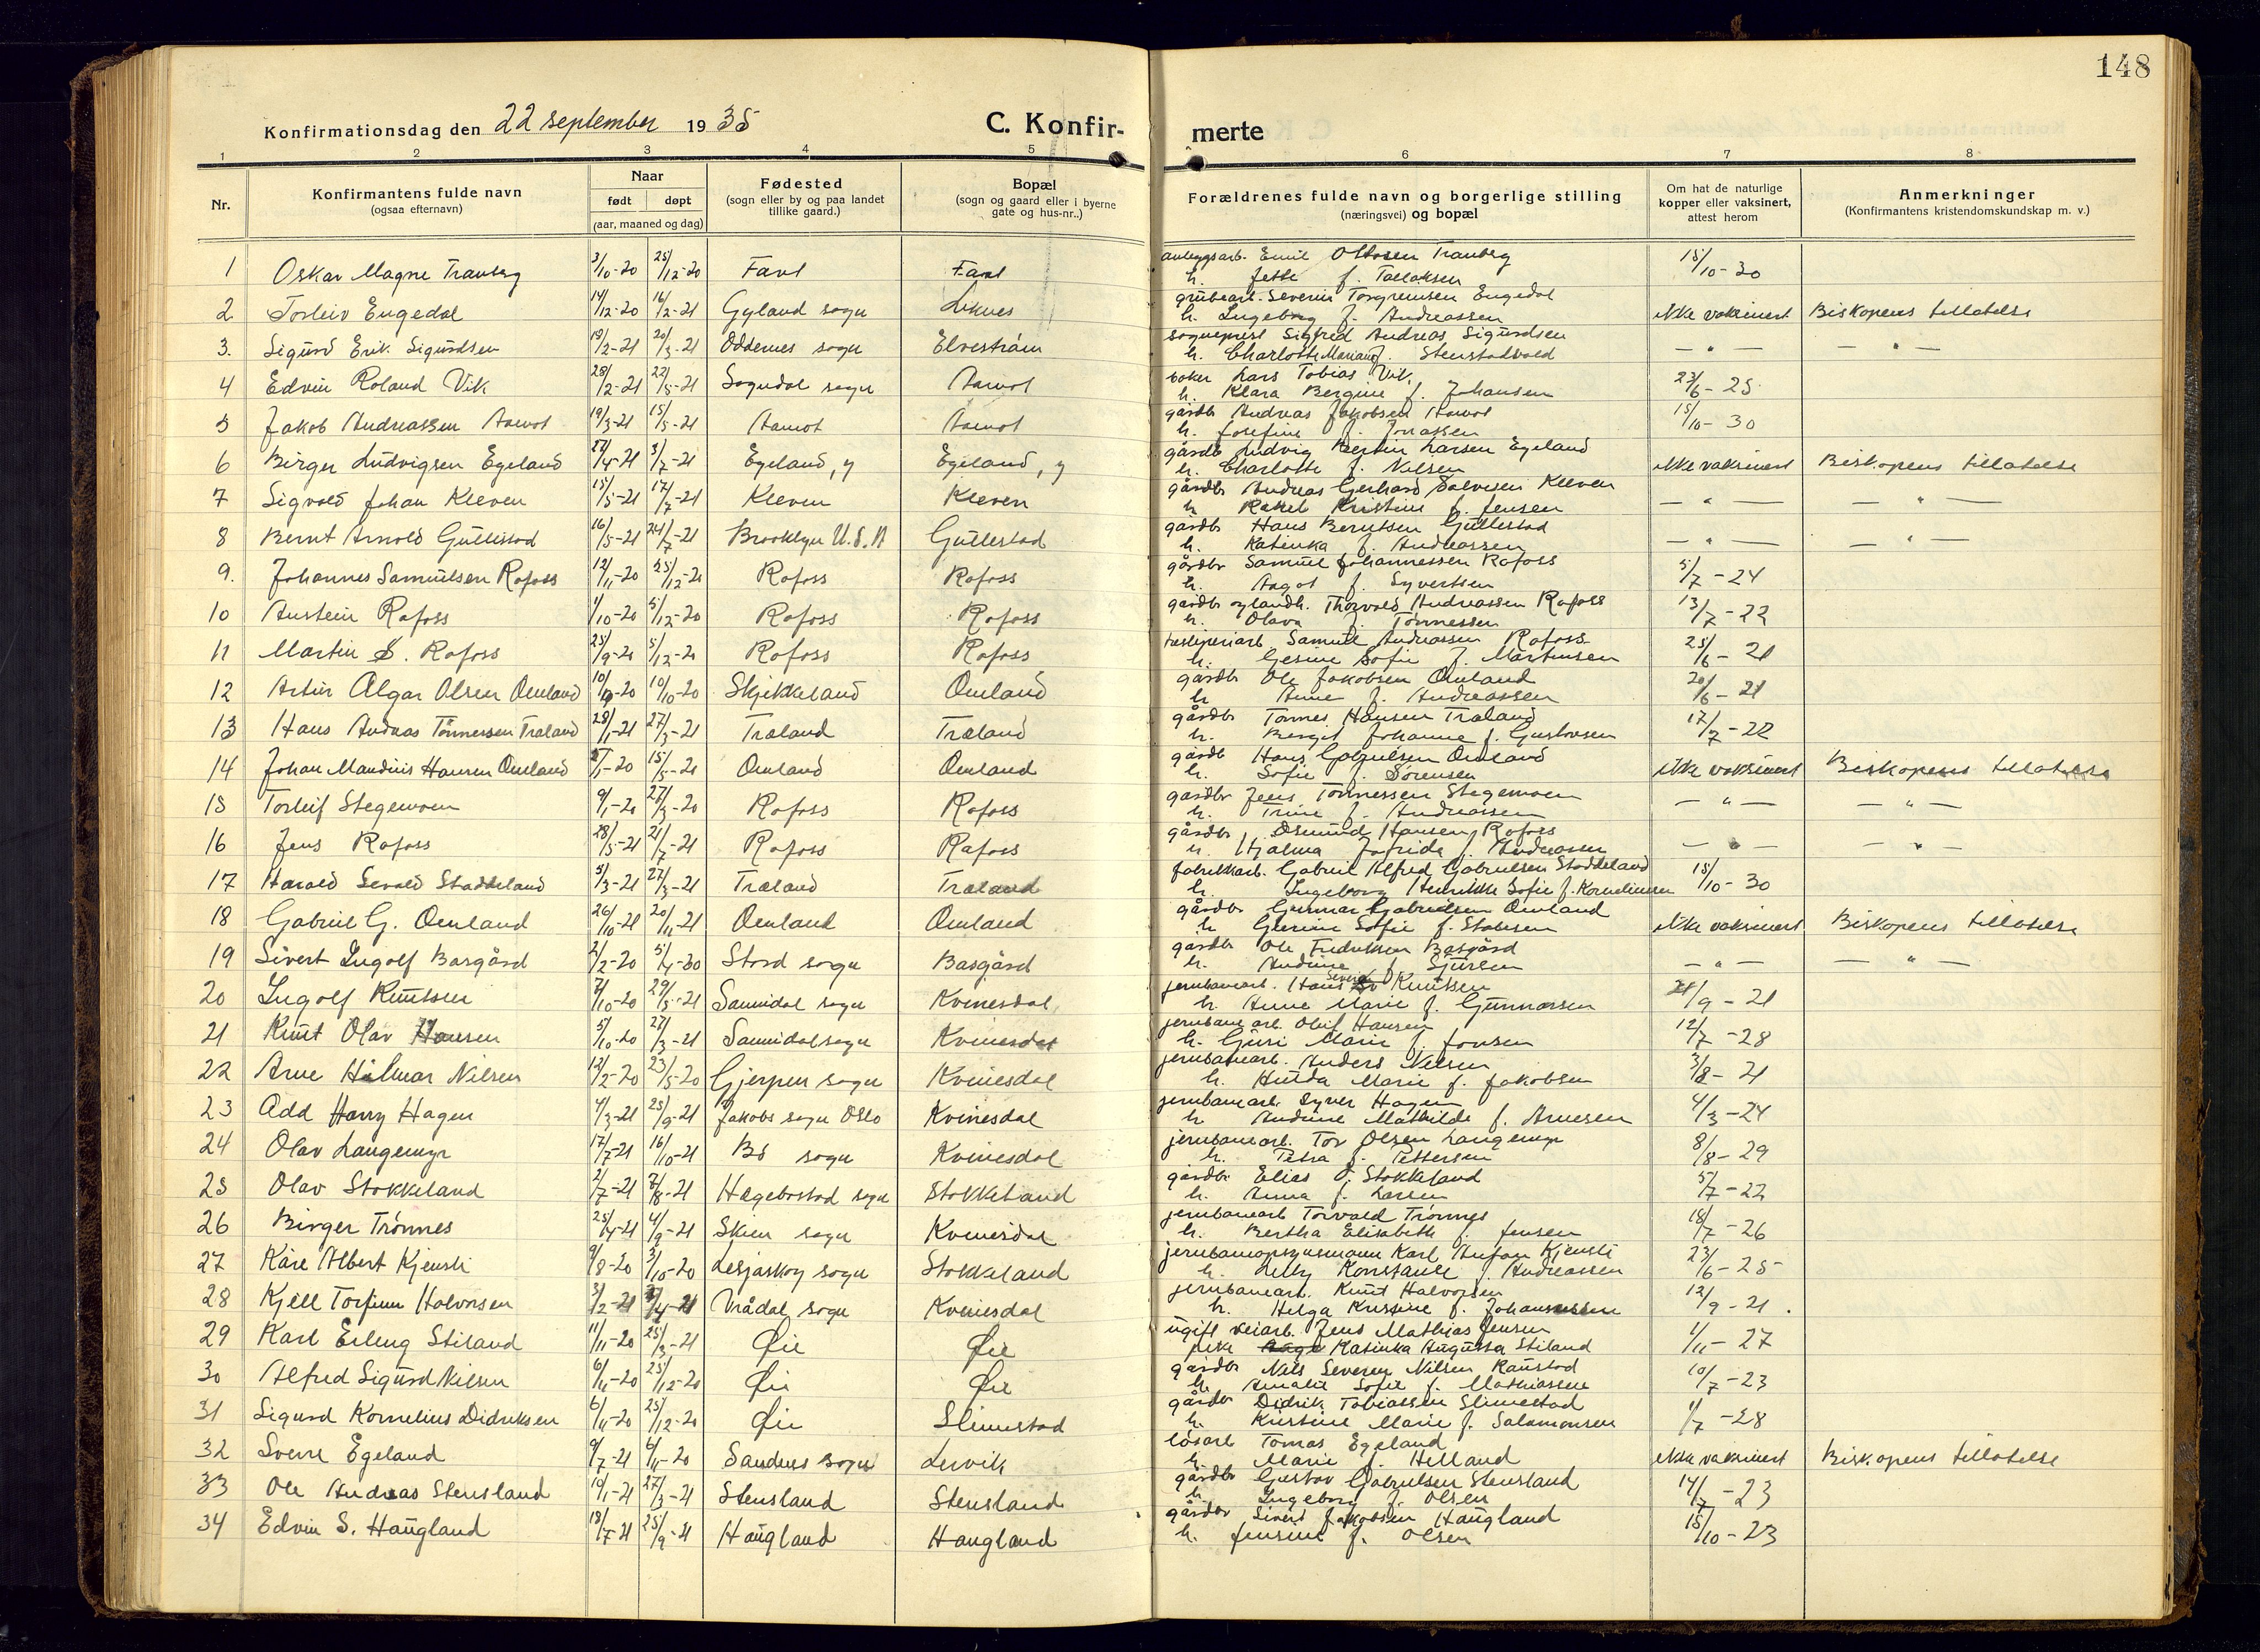 148
Konfirmationsdag den 22 september 1935
C. Konfir-
merte
1 2 3 4 5 6 7 8
Nr.
Konfirmantens fulde navn
(ogsaa efternavn)
Naar
født døpt
(aar, maaned og dag)
Fødested
(sogn eller by og paa landet
tillike gaard.)
Bopæl
(sogn og gaard eller i byerne
gate og hus-nr.,)
Forældrenes fulde navn og borgerlige stilling
(næringsvei) og bopæl
Om hat de naturlige
kopper eller vaksinert,
attest herom
Anmerkninger
(Konfirmantens kristendomskundskap m. v.)
1 Oskar Magne Tranberg 3/10-20 25/12-20 Farel Farel anleggsarb. Emil Ottosen Tranberg 15/10-30
h. Jette f. Tallaksen
2 Torleiv Engedal 14/12-20 16/2-21 Gyland sogn Liknes grubearb. Severin Torgrimsen Engedal ikke vaksinert Biskopens tillatelse
h. Ingeborg f. Andreassen
3. Sigurd Erik Sigurdsen 19/2-21 20/3-21 Oddernes sogn Elvestrøm sogneprest Sigfred Andreas Sigurdsen — " — — " —
h. Charlotte Marian f. Stenstadvold
4 Edvin Roland Vik 28/2-21 22/5-21 Sogndal sogn Aamot baker Lars Tobias Vik. 23/6-25
h. Klara Bergine f. Johansen
5 Jakob Andreassen Aamot 19/3-21 15/5-21 Aamot Aamot gårdbr Andreas Jakobsen Aamot 15/10-30
h. Josefine f. Jonassen
6 Birger Ludvigsen Egeland 27/4-21 3/7-21 Egeland, y Egeland, y gårdb Ludvig Bertin Larsen Egeland ikke vaksinert Biskopens tillatelse
h. Charlotte f. Nilsen
7 Sigvald Johan Kleven 15/5-21 17/7-21 Kleven Kleven gårdbr Andreas Gerhard Salvesen Kleven — " — — " —
h Rakel Kristine f. Jensen
8 Bernt Arnold Gullestad 16/5-21 24/7-21 Brooklyn U.S.A Gullestad gårdbr Hans Berntsen Gullestad — " — — " —
h. Katinka f. Andreassen
9. Johannes Samuelsen Rafoss 12/11-20 25/12-20 Rafoss Rafoss gårdbr Samuel Johannessen Rafoss 5/7-24
h. Aagot f. Syvertsen
10 Austein Rafoss 1/10-20 5/12-20 Rafoss Rafoss gårdbr oglandh. Thorvald Andreassen Rafoss 13/7-22
h. Olava f. Tønnessen
11 Martin S. Rafoss 25/9-20 5/12-20 Rafoss Rafoss Samuel Andreassen Rafoss 25/6-21
h. Gesine Sofie f. Martinsen
12 Artur Algar Olsen Omland 10/9-20 10/10-20 Skjekkeland Omland gårdbr Ole Jakobsen Omland 20/6-21
h Anne f. Andreassen
13 Hans Andreas Tønnessen Træland 28/1-21 27/3-21 Træland Træland gårdbr Tønnes Hansen Træland 17/7-22
h. Bergit Johanne f. Gustavsen
14 Johan Mandius Hansen Omland 15/5-20 Omland Omland gårdb Hans Gabrielsen Omland ikke vaksinert Biskopens tillatelse
h. Sofie f. Sørensen
15 Torleif Stegemoen 9/1-20 27/3-20 Rafoss Rafoss gårdbr Jens Tønnessen Stegemoen — " — — " —
h. Trine f. Andreassen
16 Jens Rafoss 28/5-21 21/7-21 Rafoss Rafoss gårdbr Osmund Hansen Rafoss — " — — " —
h. Hjalma Jofrida f. Andreassen
17 Harald Sevald Staddeland 5/3-21 27/3-21 Træland Træland fabrikkarb. Gabriel Alfred Gabrielsen Staddeland 15/10-30
h. Ingeborg Henrikke Sofie f. Korneliussen
18 Gabriel G. Omland 26/10-21 20/11-21 Omland Omland gårdbr Gunnar Gabrielsen Omland ikke vaksinert Biskopens tillatelse
h Gurine Sofie f. Stolesen
19 Sivert Ingolf Basgård 2/2-20 5/4-20 Stord sogn Basgård gårdbr Ole Fredriksen Basgård — " — — " —
h. Andrine f. Sjursen
20 Ingolf Knutsen 7/10-20 29/5-21 Sannidal sogn Kvinesdal jernbanearb. Hans Sevrin Knutsen 21/9-21
h. Anne Marie f. Gunnarsen
21 Knut Olav Hansen 5/10-20 27/3-21 Sannidal sogn Kvinesdal jernbane arb. Oluf Hansen 12/7-28
h. Guri Marie f. Jonsen
22 Arne Hilmar Nilsen 12/2-20 23/5-20 Gjerpen sogn Kvinesdal jernbanearb. Anders Nilsen 3/8-21
h. Hulda Marie f. Jakobsen
23 Add Harry Hagen 4/3-21 25/9-21 Jakobs sogn Oslo Kvinesdal jernbanearb. Syver Hagen 4/3-24
h Andrine Mathilde f. Arnesen
24 Olav Langemyr 17/7-21 16/10-21 Bø sogn Kvinesdal jernbanearb. Tor Olsen Langemyr 8/8-29
h. Petra f. Pettersen
25 Olav Stokkeland 2/7-21 7/8-21 Hægebostad sogn Stokkeland gårdbr Elias O. Stokkeland 5/7-22
h. Anna f. Larsen
26 Birger Trønnes 25/4-21 4/9-21 Skien sogn Kvinesdal jernbanearb Torvald Trønnes 18/7-26
h. Bertha Elisabeth f. Jensen
27 Kåre Albert Kjensli 9/8-20 3/10-20 Lesjaskog sogn Stokkeland jernbaneopsynsmann Karl Anton Kjensli 23/6-25
h. Lelly Konstanse f. Andreassen
28 Kjell Torfinn Halvorsen 3/2-21 Vrådal sogn Kvinesdal jernbanearb. Knut Halvorsen 12/9-21.
h. Helga Kristine f. Johannessen
29 Karl Erling Stiland 11/11-20 25/3-21 Øie Øie ugift veiarb. Jens Mathias Jensen 1/11-27
pike Katinka Augusta Stiland
30 Alfred Sigurd Nilsen 6/11-20 25/12-20 Øie Øie gårdbr Nils Severin Nilsen Raustad 10/7-23
h. Amalie Sofie f. Mathiassen
31 Sigurd Kornelius Didriksen 6/11-20 25/12-20 Øie Slimestad gårdbr Didrik Tobiassen Slimestad 1/7-28
h. Kristine Marie f. Salamonsen
32 Sverre Egeland 9/7-21 6/11-20 Sandnes sogn Lervik løsarb Tomas Egeland ikke vaksinert Biskopens tillatelse
h. Marie f. Helland
33 Ole Andreas Stensland 19/1-21 27/3-21 Stensland Stensland gårdbr Gustav Gabrielsen Stensland 14/7-23
h Ingeborg f. Olsen
34 Edvin S. Haugland 18/7-21 25/9-21 Haugland Haugland gårdbr Sivert Jakobsen Haugland 15/10-23
h. Jensine f. Olsen